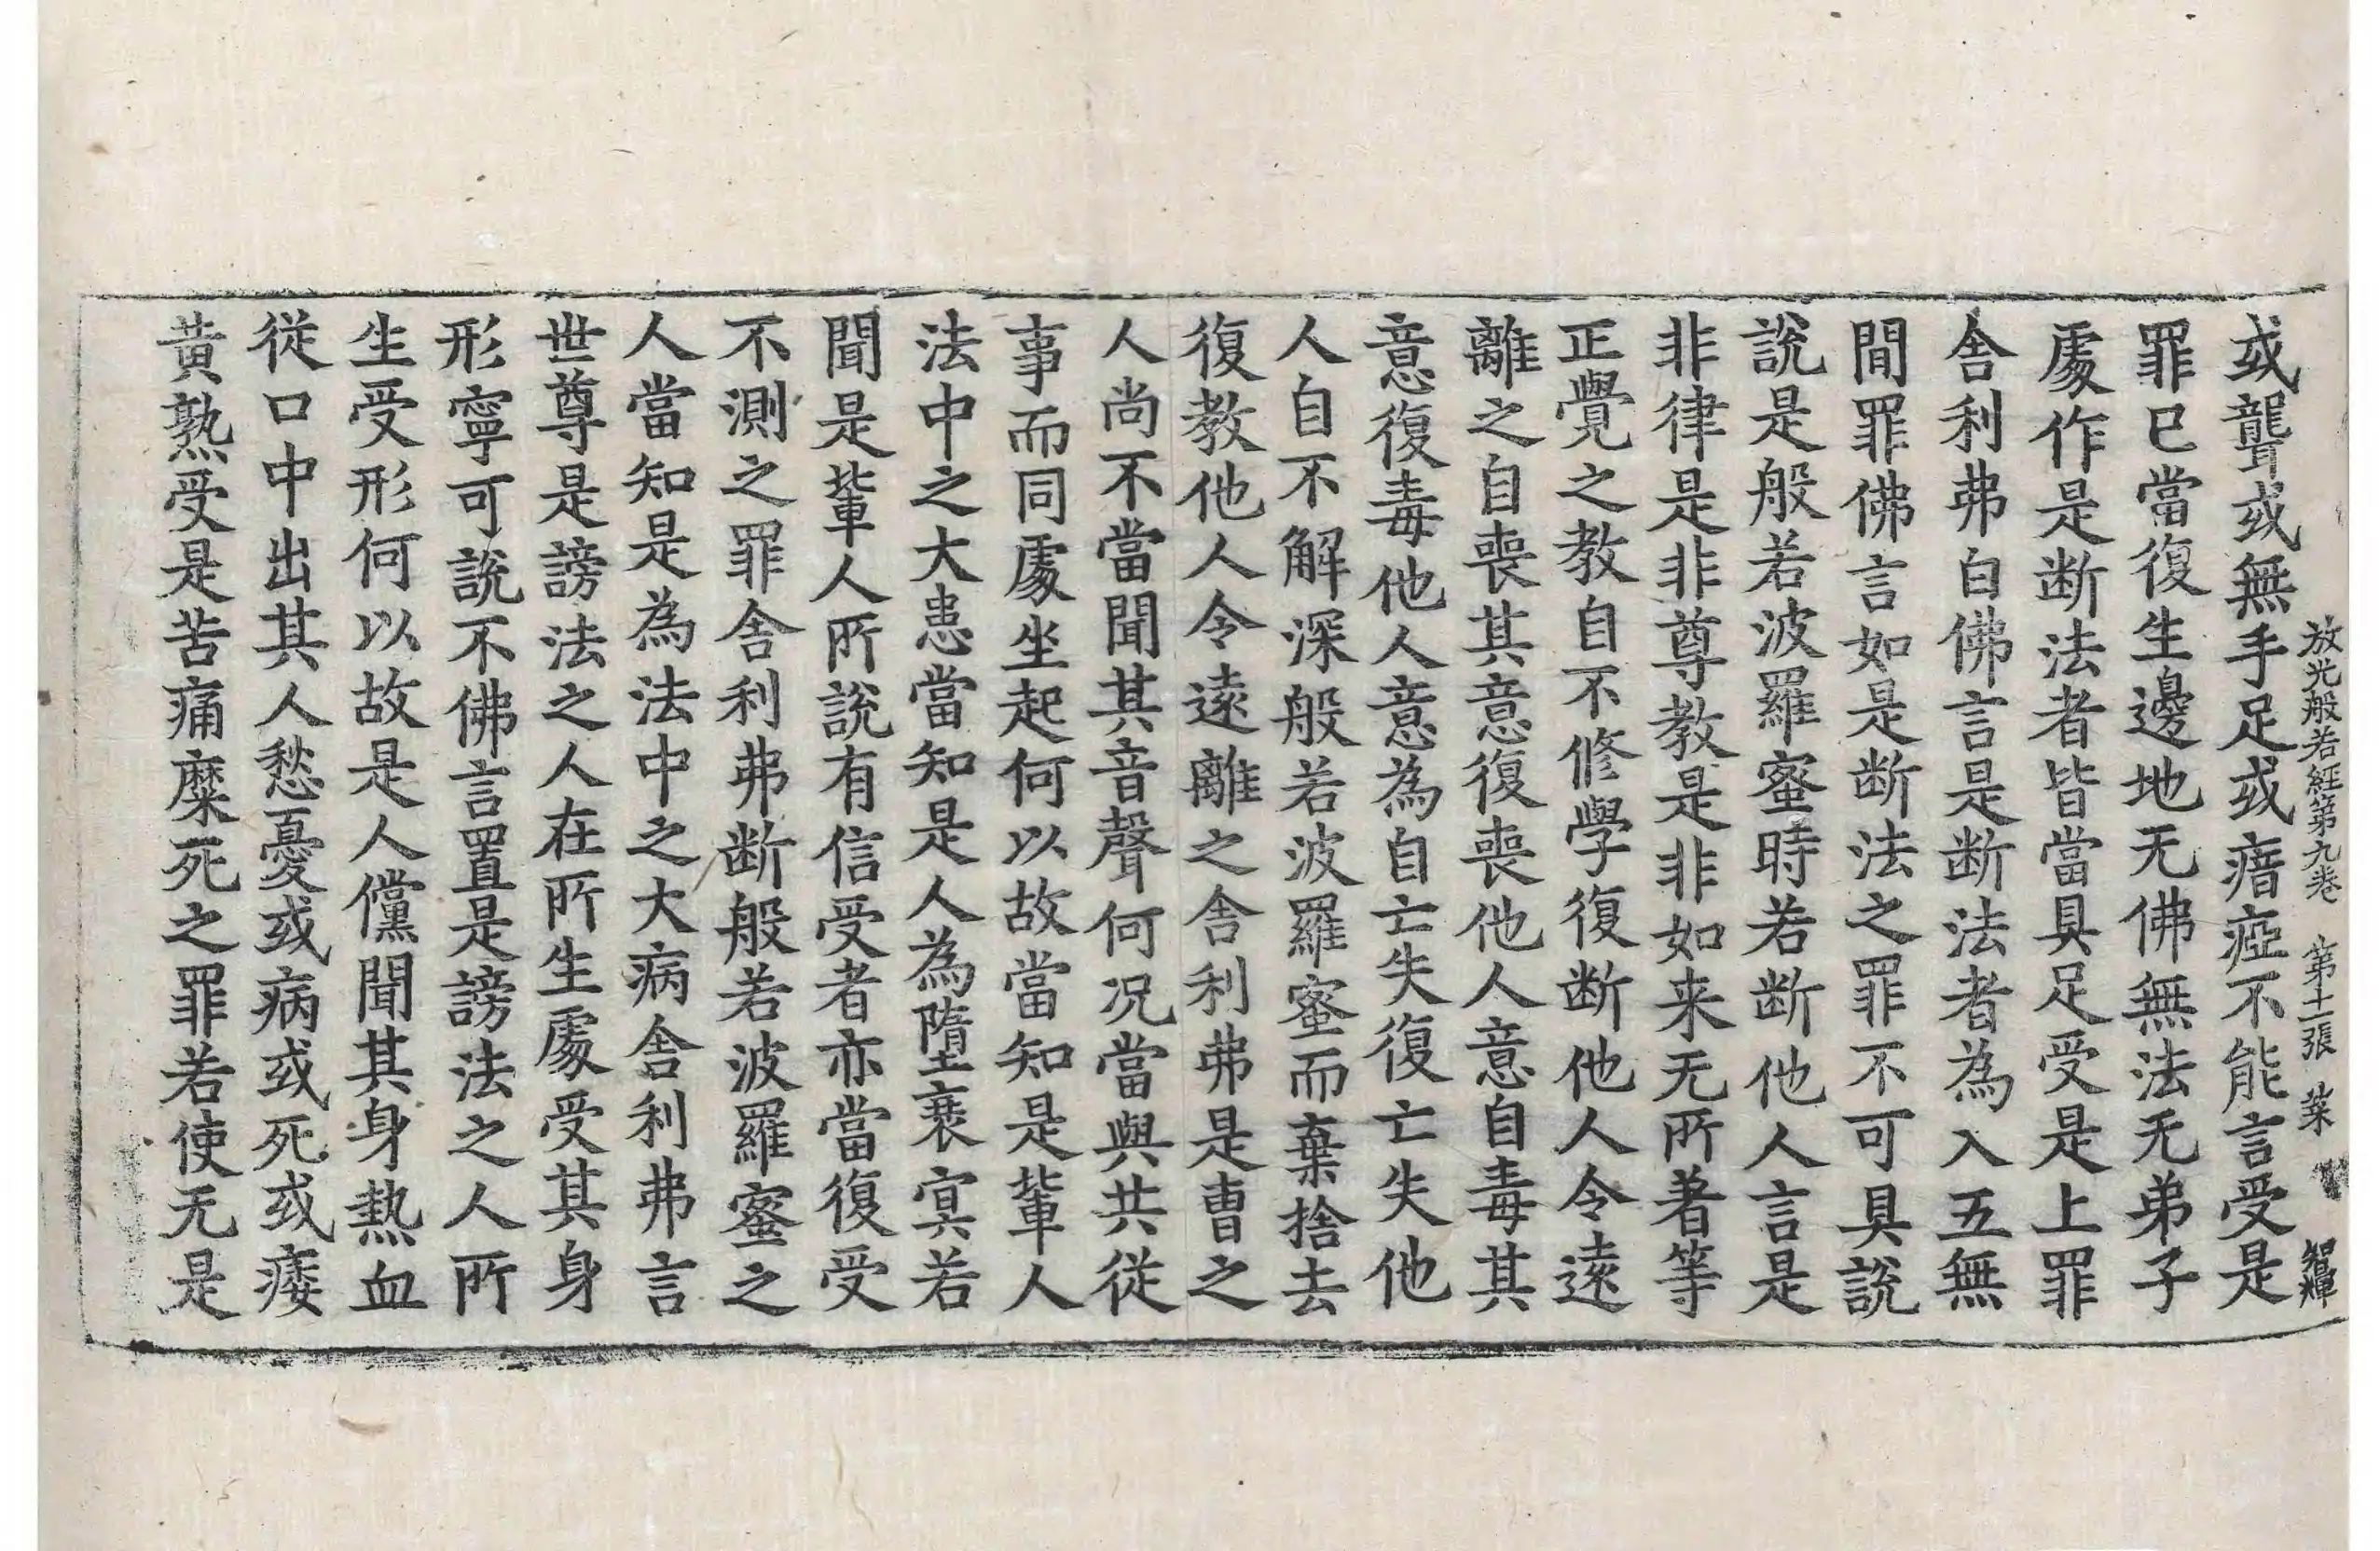 放光般若經第九卷 第十一張 菜 智輝
或聾或無手足或瘖瘂不能言受是
罪已當復生邊地无佛無法无弟子
處作是断法者皆當具足受是上罪
舍利弗白佛言是断法者為入五無
間罪佛言如是断法之罪不可具說
說是般若波羅蜜時若断他人言是
非律是非尊教是非如来无所著等
正覺之教自不修學復断他人令遠
離之自喪其意復喪他人意自毒其
意復毒他人意為自亡失復亡失他
人自不解深般若波羅蜜而棄捨去
復教他人令遠離之舍利弗是曹之
人尚不當聞其音聲何況當與共從
事而同處坐起何以故當知是輩人
法中之大患當知是人為墮衰冥若
聞是輩人所說有信受者亦當復受
不測之罪舍利弗断般若波羅蜜之
人當知是為法中之大病舍利弗言
世尊是謗法之人在所生處受其身
形寧可說不佛言置是謗法之人所
生受形何以故是人儻聞其身熱血
従口中出其人愁憂或病或死或痿
黄熟受是苦痛糜死之罪若使无是